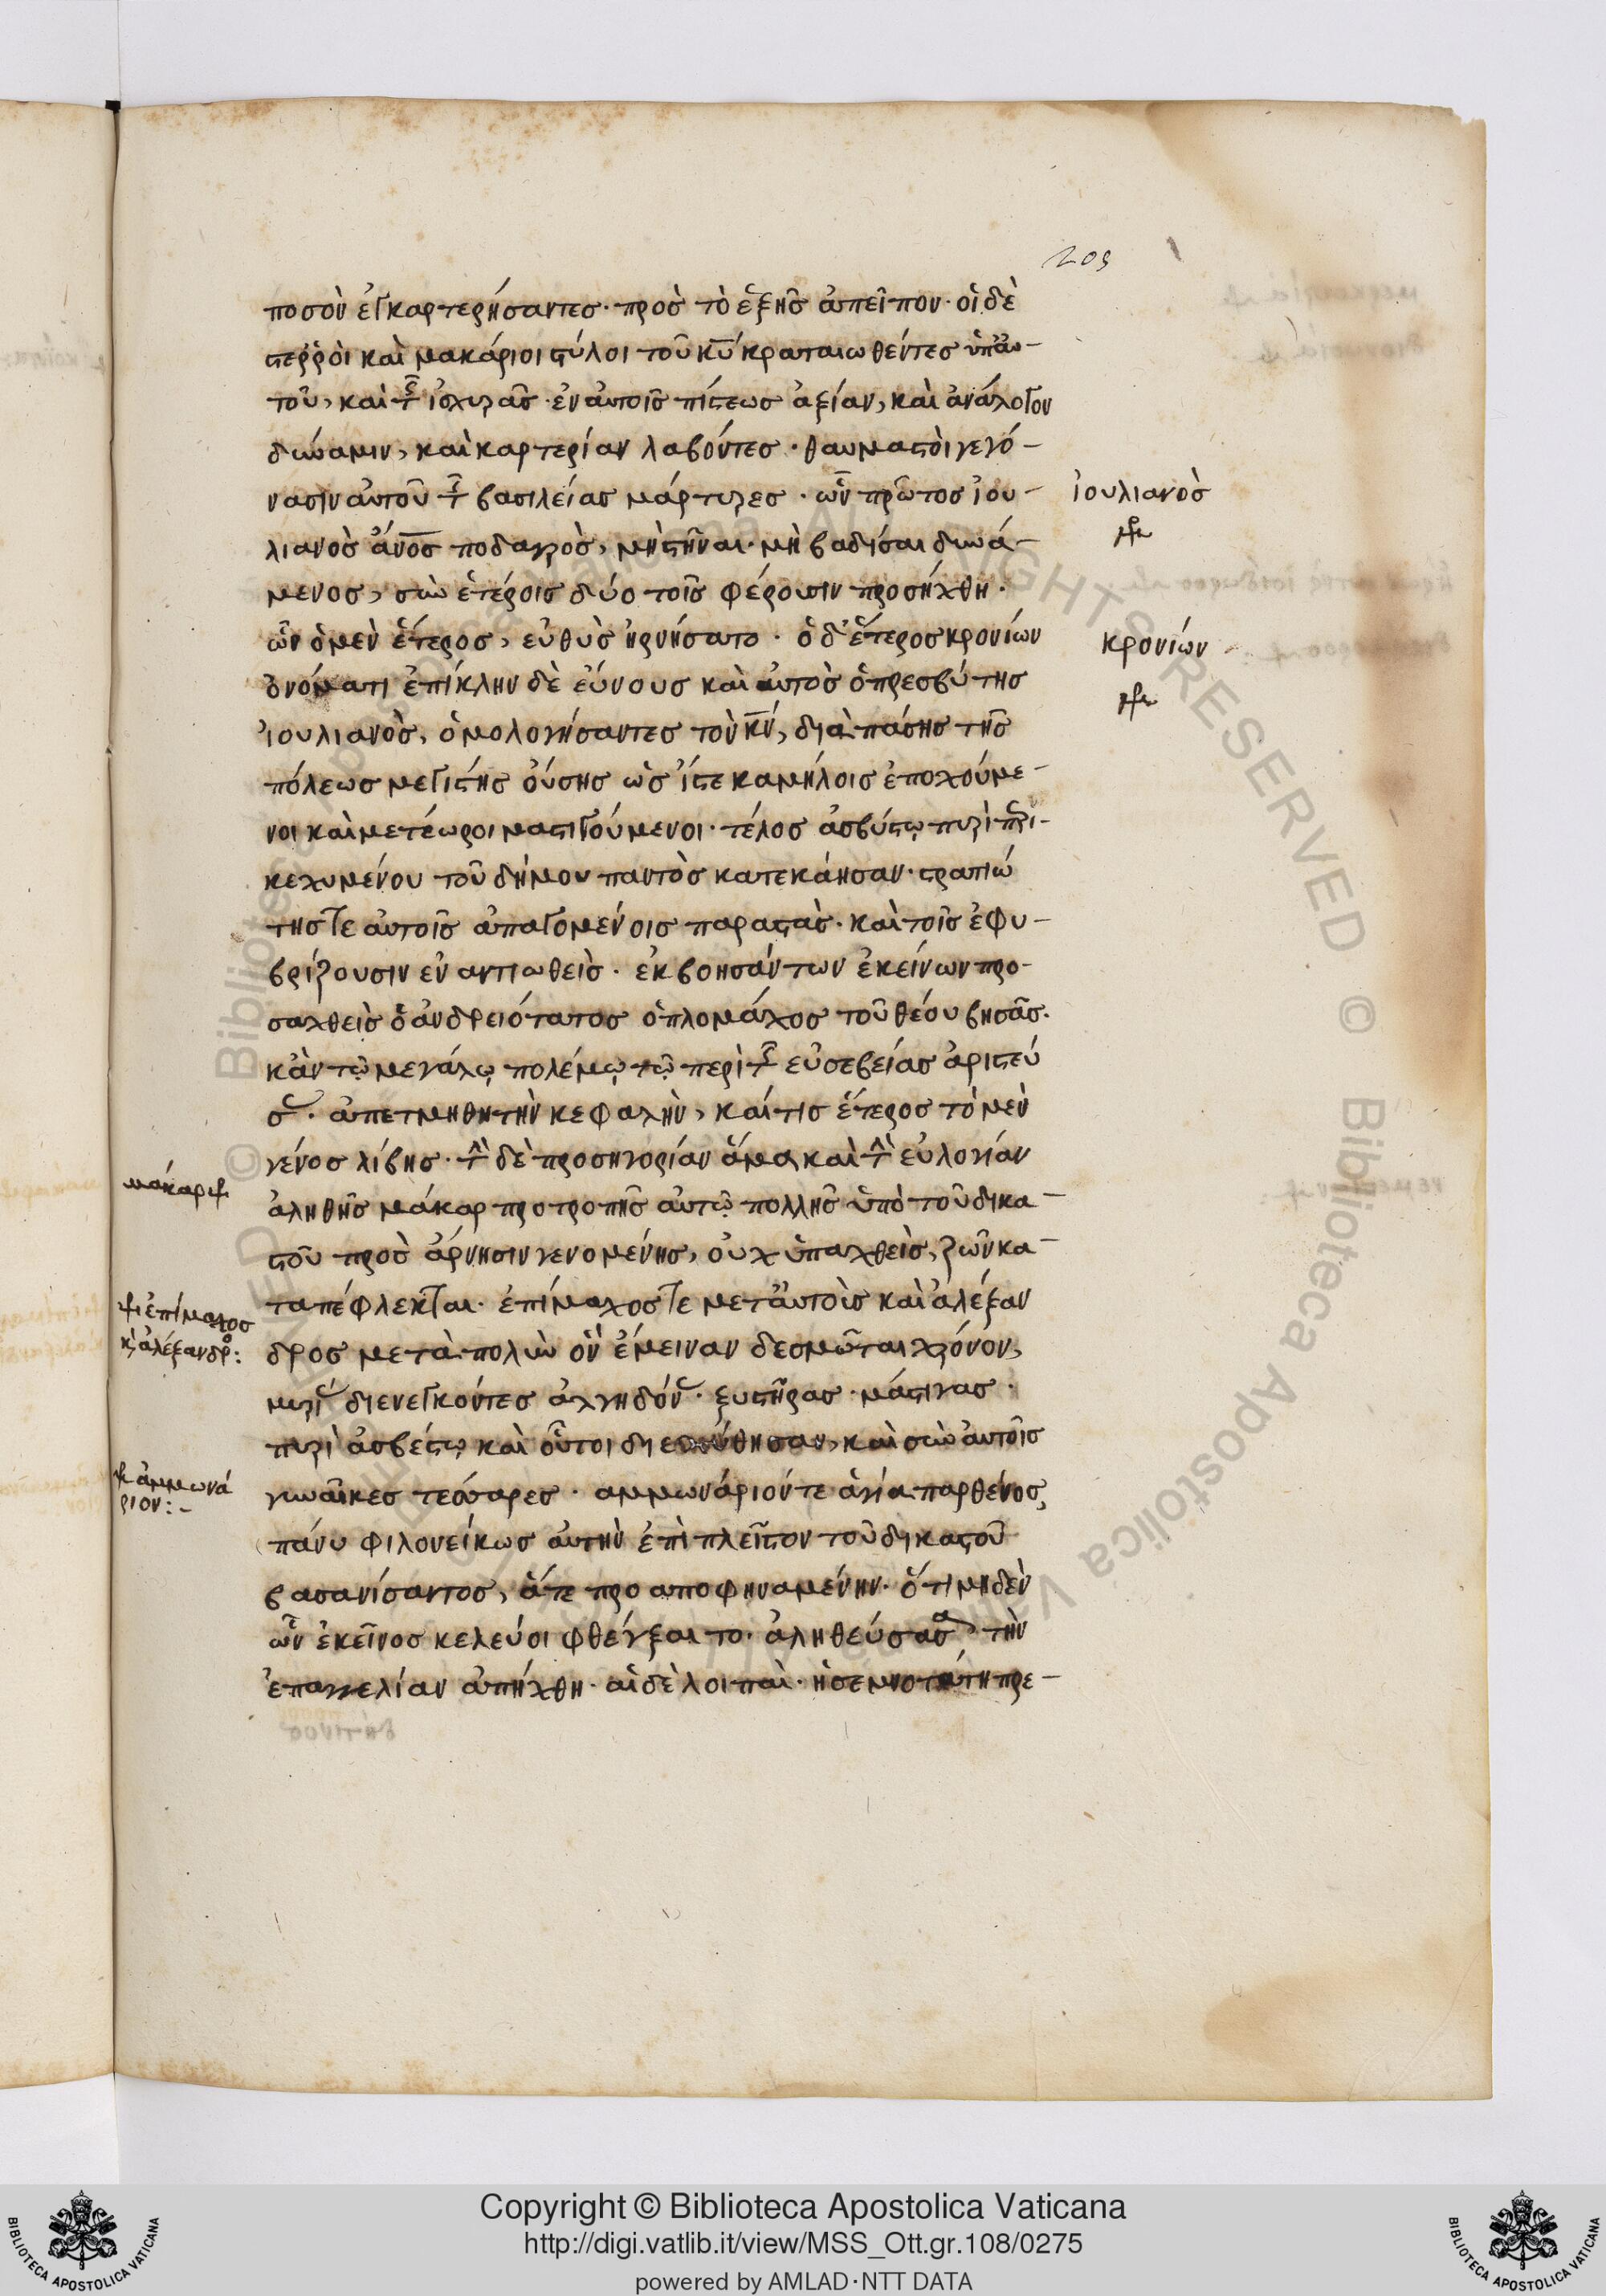 209
ποσὸν ἐγκαρτερήσαντες· πρὸς τὸ ἑξῆς ἀπεῖπον· οἱ δὲ
στερροὶ καὶ μακάριοι στύλοι τοῦ κυ κραταιωθέντες ὑπ' αυ-
τοῦ, καὶ τῆς ἰσχυρᾶς ἐν αὐτοῖς πίστεως ἀξίαν, καὶ ἀνάλογον
δύναμιν, καὶ καρτερίαν λαβόντες· θαυμαστοὶ γεγό-
νασιν αὐτοῦ τῆς βασιλείας μάρτυρες· ὧν πρῶτος ἰου-
ἰουλιανὸς
λιανὸς ἄνος ποδαγρὸς, μὴ στῆναι· μὴ βαδίσαι δυνά-
μενος, σὺν ἑτέροις δύο τοῖς φέρουσιν προσήχθη·
ὧν ὁ μὲν ἕτερος, εὐθὺς ἠρνήσατο· ὁ δ' ἕτερος κρονίων
κρονίων
ὀνόματι ἐπίκλην δὲ εὔνους καὶ αὐτὸς ὁ πρεσβύτης
ἰουλιανὸς, ὁμολογήσαντες τὸν κν, διὰ πάσης τῆς
πόλεως μεγίστης οὔσης ὡς ἴστε καμήλοις ἐποχούμε-
νοι καὶ μετέωροι μαστιγούμενοι· τέλος ἀσβύστῳ πυρὶ περι-
κεχυμένου τοῦ δήμου παντὸς κατεκάησαν· στρατιώ
της τε αὐτοῖς ἀπαγομένοις παραστὰς· καὶ τοῖς ἐφυ-
βρίζουσιν ἐναντιωθεὶς· ἐκβοησάντων ἐκείνων προ-
σαχθεὶς ὁ ἀνδρειότατος ὁπλομάχος τοῦ θεοῦ βησᾶς·
κἀν τῷ μεγάλῳ πολέμῳ τῷ περὶ τῆς εὐσεβείας ἀριστεύ
σας· ἀπετμήθη τὴν κεφαλὴν, καί τις ἕτερος τὸ μὲν
γένος λίβης· τὴν δὲ προσηγορίαν ἅμα καὶ τὴν εὐλογίαν
μάκαρ
ἀληθῆς μάκαρ προτροπῆς αὐτῷ πολλῆς ὑπὸ τοῦ δικα-
στοῦ πρὸς ἄρνησιν γενομένης, οὐχ ὑπαχθεὶς, ζῶν κα-
ἐπίμαχος
κ ἀλέξανδρο:
ταπέφλεκται· ἐπίμαχός τε μετ' αὐτοὺς καὶ ἀλέξαν
δρος μετὰ πολὺν ὃν ἔμειναν δεσμῶται χρόνον,
μυρίας διενεγκόντες ἀλγηδόνας· ξυστῆρας· μάστιγας·
πυρὶ ἀσβέστῳ καὶ οὗτοι διεχύθησαν, καὶ σὺν αὐτοῖς
ἀμμωνά
ριον:-
γυναῖκες τέσσαρες· ἀμμωνάριόν τε ἁγία παρθένος,
πάνυ φιλονείκως αὐτὴν ἐπὶ πλεῖστον τοῦ δικαστοῦ
βασανίσαντος, ἅτε προαποφηναμένην· ὅτι μηδὲν
ὧν ἐκεῖνος κελεύσι φθέγξαιτο· ἀληθεύσασα τὴν
ἐπαγγελίαν ἀπήχθη· αἱ δὲ λοιπαὶ· ἡ σεμνοτάτη πρε-
Copyright © Biblioteca Apostolica Vaticana
http://digi.vatlib.it/view/MSS_Ott.gr.108/0275
powered by AMLAD·NTT DATA
BIBLIOTECA APOSTOLICA VATICANA
BIBLIOTECA APOSTOLICA VATICANA